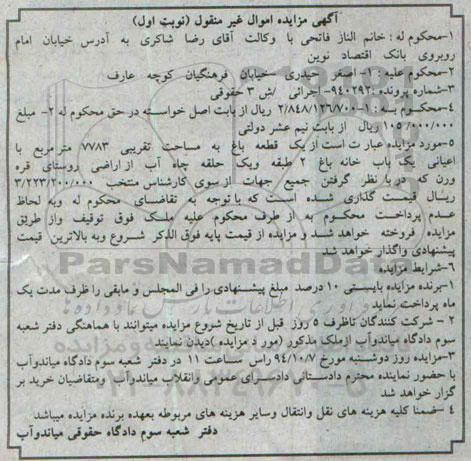 آگهی مزایده اموال غیر منقول (نوبت اول)
۱-محکوم له : خانم الناز فاتحی با وکالت آقای رضا شاکری به آدرس خیابان امام
روبروی بانک اقتصاد نوین
۲-محکوم علیه : ۱- اصغر حیدری -خیابان فرهنگیان کوچه عارف
۳-شماره پرونده : ۹۴۰۲۹۲- اجرائی /ش ۳ حقوقی
۴-محکوم به : ۱-۲/۸۴۸/۱۲۶۷۰۰ ریال از بابت اصل خواسته در حق محکوم له ۲- مبلغ
۱۰۵/۰۰۰/۰۰۰ ریال از بابت نیم عشر دولتی
۵-مورد مزایده عبار ت است از یک قطعه باغ به مساحت تقریبی ۷۷۸۳ متر مربع با
اعیانی یک باب خانه باغ ۲ طبقه ویک حلقه چاه آب ازاراضی روستای قره
ورن که در با نظر گرفتن جمیع جهات از سوی کارشناس منتخب ۳/۲۲۳/۲۰۰/۰۰۰
ریال قیمت گذاری شده است که با توجه به تقاضای محکوم له وبه لحاظ
عدم پرداخت محکوم به از طرف محکوم علیه ملک فوق توقیف واز طریق
مزایده فروخته خواهد شد و مزایده از قیمت پایه فوق الذکر شروع وبه بالاترین قیمت
پیشنهادی واگذار خواهد شد
۶-شرایط مزایده
۱-برنده مزایده بایستی ۱۰ درصد مبلغ پیشنهادی را فی المجلس و مابقی را ظرف مدت یک
ماه پرداخت نماید
۲- شرکت کنندگان تاظرف ۵ روز قبل از تاریخ شروع مزایده میتوانند با هماهنگی دفتر شعبه
سوم دادگاه میاندوآب ازملک مذکور (مور د مزایده )دیدن نمایند
۳-مزایده روز دوشنبه مورخ ۹۴/۱۰/۷ راس ساعت ۱۱ در دفتر شعبه سوم دادگاه میاندوآب
با حضور نماینده محترم دادستانی دادسرای عمومی وانقلاب میاندوآب ومتقاضیان خرید بر
گزار خواهد شد
۴ -ضمنا کلیه هزینه های نقل وانتقال وسایر هزینه های مربوطه بعهده برنده مزایده میباشد
دفتر شعبه سوم دادگاه حقوقی میاندوآب
ParsNamadData